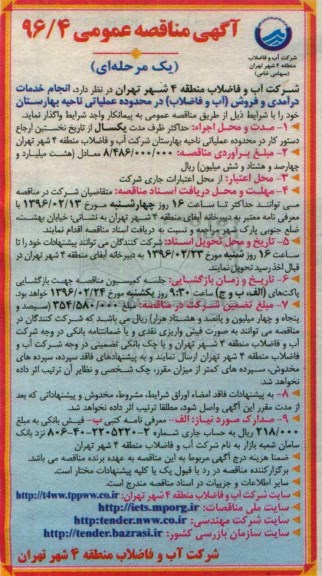 آگهی مناقصه عمومی ۹۶/۴
(یک مرحله‌ای)
شرکت آب و فاضلاب
منطقه ۴ شهر تهران
(سهامی خاص)
شرکت آب و فاضلاب منطقه ۴ شهر تهران در نظر دارد، انجام خدمات
درآمدی و فروش (آب و فاضلاب) در محدوده عملیاتی ناحیه بهارستان
خود را با شرایط ذیل از طریق مناقصه عمومی به پیمانکار واجد شرایط واگذار نماید.
۱- مدت و محل اجراء: حداکثر ظرف مدت یکسال از تاریخ نخستین ارجاع
دستور کار در محدوده عملیاتی ناحیه بهارستان شرکت آب و فاضلاب منطقه ۴ شهر تهران
۲- مبلغ برآوردی مناقصه: ۸/۴۸۶/۰۰۰/۰۰۰ معادل (هشت میلیارد و
چهارصد و هشتاد و شش میلیون) ریال
۳- محل اعتبار: از محل اعتبارات جاری شرکت
۴- مهلت و محل دریافت اسناد مناقصه: متقاضیان شرکت در مناقصه
می توانند حداکثر تا ساعت ۱۶ روز چهارشنبه مورخ ۱۳۹۶/۰۲/۱۳ با
معرفی نامه معتبر به دبیرخانه آبفای منطقه ۴ شهر تهران به نشانی: خیابان بهشت،
ضلع جنوبی پارک شهر مراجعه و نسبت به دریافت اسناد مناقصه اقدام نمایند.
۵- تاریخ و محل تحویل اسناد: شرکت کنندگان می توانند پیشنهادات خود را تا
ساعت ۱۶ روز شنبه مورخ ۱۳۹۶/۰۲/۲۳ به دبیرخانه آبفای منطقه ۴ تهران در
قبال اخذ رسید تحویل نمایند.
۶- تاریخ و زمان بازگشایی: جلسه کمیسیون مناقصه جهت بازگشایی
پاکت‌های (الف ب و ج) ساعت ۹:۳۰ روز یکشنبه مورخ ۱۳۹۶/۰۲/۲۴ خواهد بود.
۷- مبلغ تضمین شرکت در مناقصه: مبلغ ۳۵۴/۵۸۰/۰۰۰ (سیصد و
پنجاه و چهار میلیون و پانصد و هشتاد هزار) ریال می باشد که شرکت کنندگان در
مناقصه می توانند به صورت فیش واریزی نقدی و یا ضمانتنامه بانکی در وجه شرکت
آب و فاضلاب منطقه ۴ شهر تهران و یا چک بانکی تضمینی در وجه شرکت آب و
فاضلاب منطقه ۴ شهر تهران ارسال نمایند و به پیشنهادهای فاقد سپرده، سپرده های
مخدوش، سپرده های کمتر از میزان مقرر، چک شخصی و نظایر آن ترتیب اثر داده
نخواهد شد.
۸- به پیشنهادات فاقد امضاء اوراق شرایط، مشروط، مخدوش و پیشنهاداتی که بعد
از مدت مقرر این آگهی واصل شود، مطلقا ترتیب اثر داده نخواهد شد.
۹- مدارک مورد نیاز: الف- معرفی نامه کتبی ب- فیش بانکی به مبلغ
۲۱۸/۰۰۰ ریال به حساب جاری شماره ۳-۲۲۰۵۲۲۰-۴۰-۸۰۶ نزد بانک
سامان شعبه بازار به نام شرکت آب و فاضلاب منطقه ۴ شهر تهران
ضمنا هزینه درج آگهی مربوط به این مناقصه به عهده برنده مناقصه می باشد.
برگزارکننده مناقصه در رد یا قبول یک یا کلیه پیشنهادات مختار است.
سایر اطلاعات و جزییات در اسناد مناقصه مندرج است.
سایت شرکت آب و فاضلاب منطقه ۴ شهر تهران: http://t4ww.tppww.co.ir
سایت ملی مناقصات: http://iets.mporg.ir
سایت شرکت مهندسی: http:tender.nww.co.ir
سایت سازمان بازرسی کشور: http://tender.bazrasi.ir
شرکت آب و فاضلاب منطقه ۴ شهر تهران